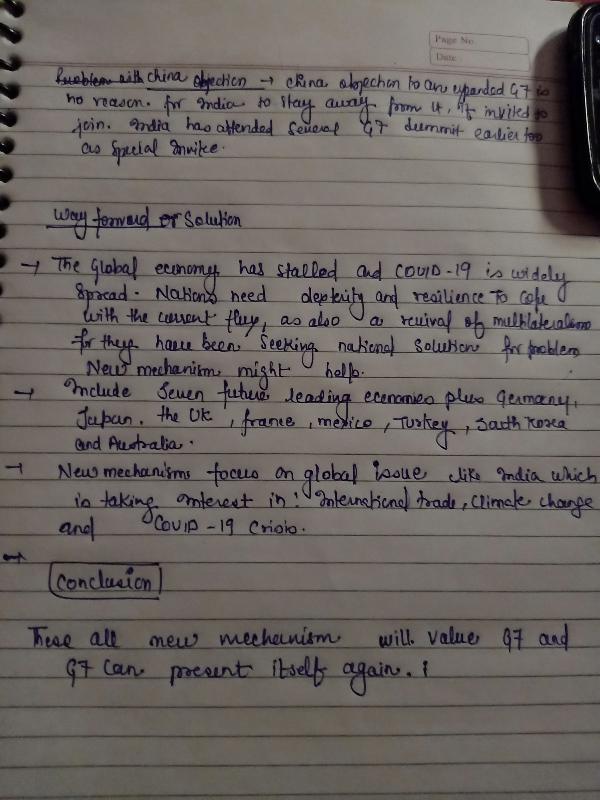 Page No
Date
Problem with China objection → China objection to an expanded G7 is
no reason. for India to stay away from it, if invited to
join. India has attended several G7 summit earlier too
as special invitee.
Way forward or Solution
→ The Global economy has stalled and COVID-19 is widely
spread. Nations need dexterity and resilience to cope
with the current flux, as also a revival of multilateralism
for they have been seeking national solution for problem
New mechanism might help.
→ Include seven future leading economies plus Germany,
Japan. the UK, france, mexico, Turkey, South Korea
and Australia.
→ New mechanisms focus on global issue like India which
is taking interest in: International trade, Climate change
and COVID-19 Crisis.
→
Conclusion
These all new mechanism will value G7 and
G7 can present itself again.